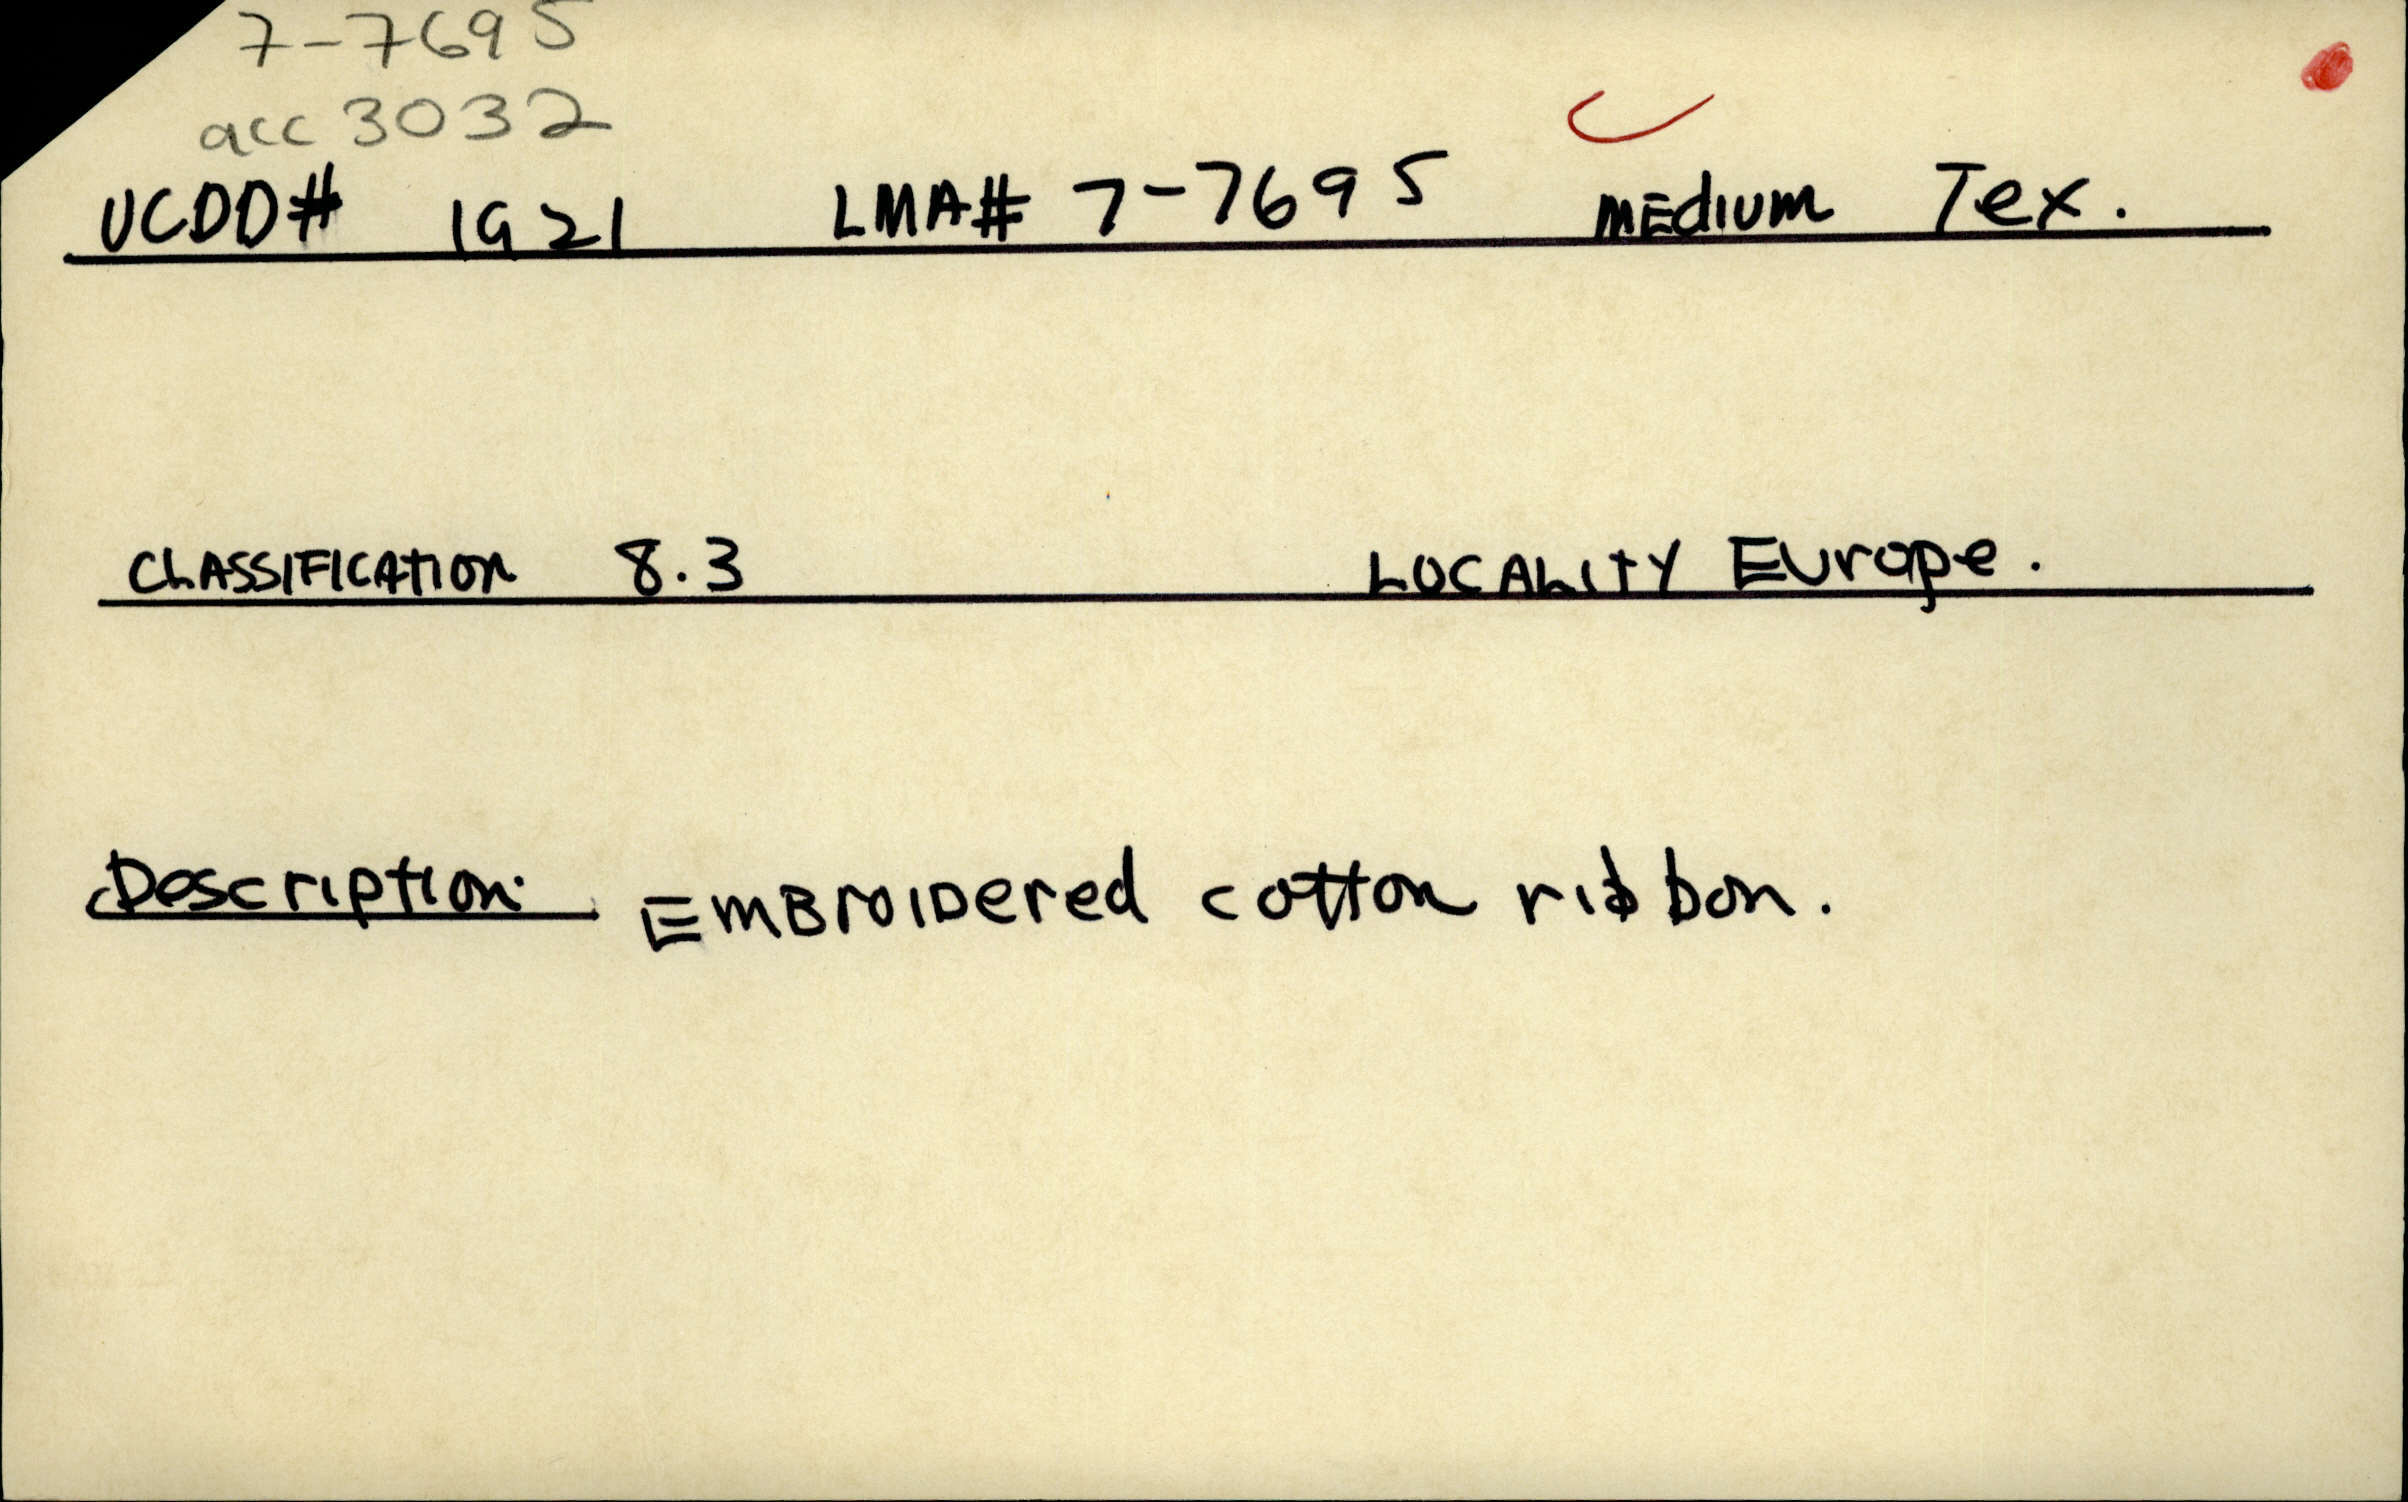 7-7695
acc 3032
UCDD# 1921 LMA# 7-7695 MEdium Tex.
CLASSIFICATION 8.3 LOCALITY Europe.
Description: Embroidered cotton ribbon.